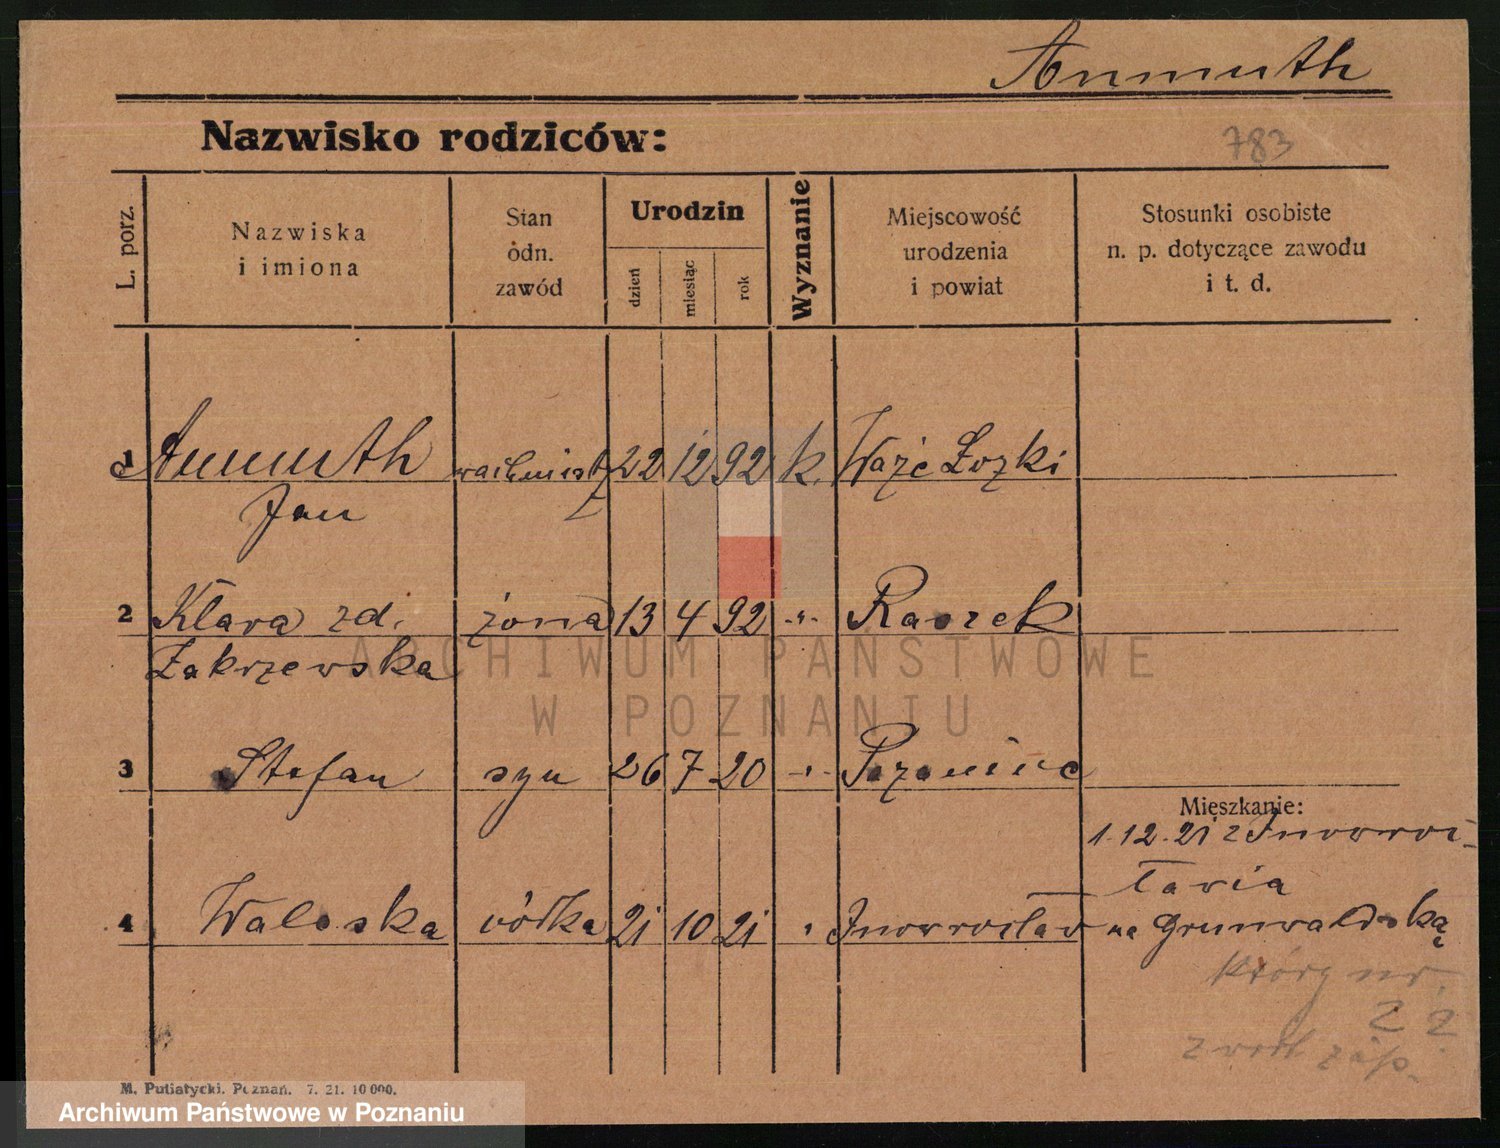 Anmuth
Nazwisko rodziców:
783
L. porz.
Nazwiska
i imiona
Stan
odn.
zawód
Urodzin
dzień
miesiąc
rok
Wyznanie
Miejscowość
urodzenia
i powiat
Stosunki osobiste
n. p. dotyczące zawodu
i t. d.
1 Anmuth wachmistrz 22 12 92 k.
Jan
2 Klara zd. żona 13 4 92 -"- Raszek
Zakrzewska
3 Stefan syn 26 7 20 -"-
Mieszkanie:
1.12.21 z Inowroc-
ławia
4 Waleska córka 21 10 21 " Inowrocław na Grunwaldzką
który nr.
2 2
M. Putiatycki. Poznań. 7. 21. 10 000.
ARCHIWUM PAŃSTWOWE
W POZNANIU
Archiwum Państwowe w Poznaniu